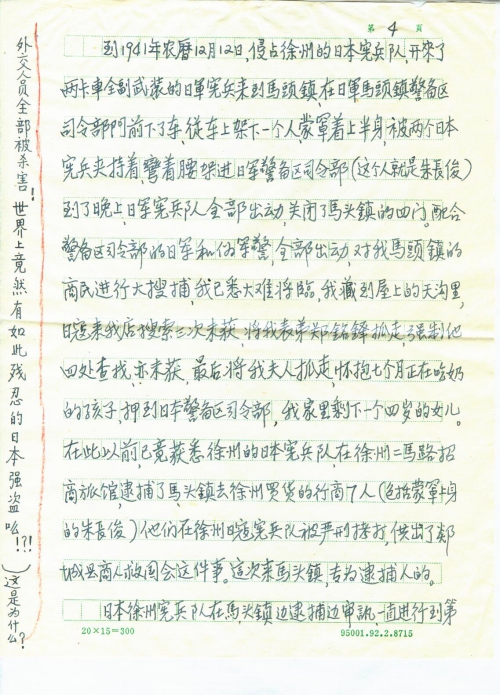 第 4 頁
到1941年农曆12月12日,侵占徐州的日本宪兵队,开来了
两卡車全副武装的日軍宪兵来到馬頭鎮,在日軍馬頭鎮警备区
司令部門前下了车,從车上架下一个人,蒙罩着上半身,被两个日本
宪兵夹持着,彎着腰架進日军警备区司令部(这个人就是朱長俊)
到了晚上,日军宪兵队全部出动,关闭了馬头镇的四门。配合
警备区司令部的日军和伪军警,全部出动,对我馬頭镇的
商民进行大搜捕,我已悉大难将臨,我藏到屋上的天沟里,
日寇来我店搜索三次未获,将我表弟郑銘鐸抓走,强制他
四处查找,亦未获,最后将我夫人抓走,怀抱七个月正在吃奶
的孩子,押到日本警备区司令部,我家里剩下一个四岁的女儿。
在此以前已竟获悉徐州的日本宪兵队,在徐州二馬路招
商旅馆逮捕了馬头镇去徐州买货的行商7人(包括蒙罩上身
的朱長俊)他们在徐州日寇宪兵队被严刑拷打,供出了郯
城县商人救国会这件事。這次来馬头鎮,专为逮捕人的。
日本徐州宪兵队在馬头镇边逮捕边审訊,一直进行到第
20×15=300
95001.92.2.8715
外交人员全部被杀害!世界上竟然有如此残忍的日本强盗么!?!(这是为什么?)